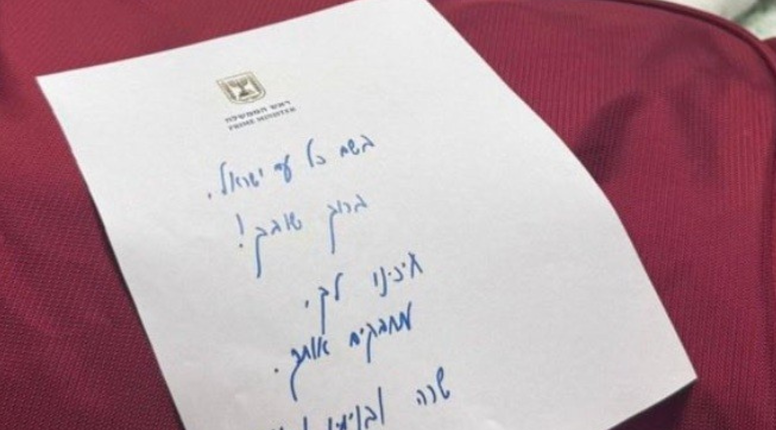 ראש הממשלה
PRIME MINISTER
בשם כל עם ישראל.
ברוך שובך!
חיכינו לך,
מחבקים אותך.
שרה ובנימין